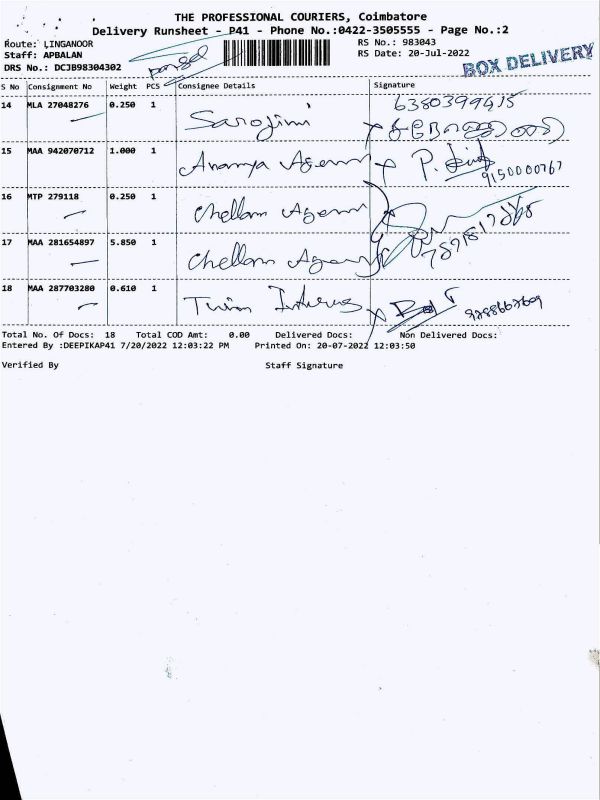 THE PROFESSIONAL COURIERS, Coimbatore
Delivery Runsheet - P41 - Phone No.:0422-3505555 - Page No.:2
Route: LINGANOOR
RS No.: 983043
Staff: APBALAN
RS Date: 20-Jul-2022
DRS No.: DCJB98304302
BOX DELIVERY
S No Consignment No Weight PCS Consignee Details Signature
6380399415
14 MLA 27048276 0.250 1 Sarojini
15 MAA 942070712 1.000 1 Ananya Agenu P.
9150000767
16 MTP 279118 0.250 1 Chellam Agenu
17 MAA 281654897 5.850 1 Chellam
18 MAA 287703280 0.610 1 Twin
Total No. Of Docs: 18 Total COD Amt: 0.00 Delivered Docs: Non Delivered Docs:
Entered By :DEEPIKAP41 7/20/2022 12:03:22 PM Printed On: 20-07-2022 12:03:50
Verified By Staff Signature